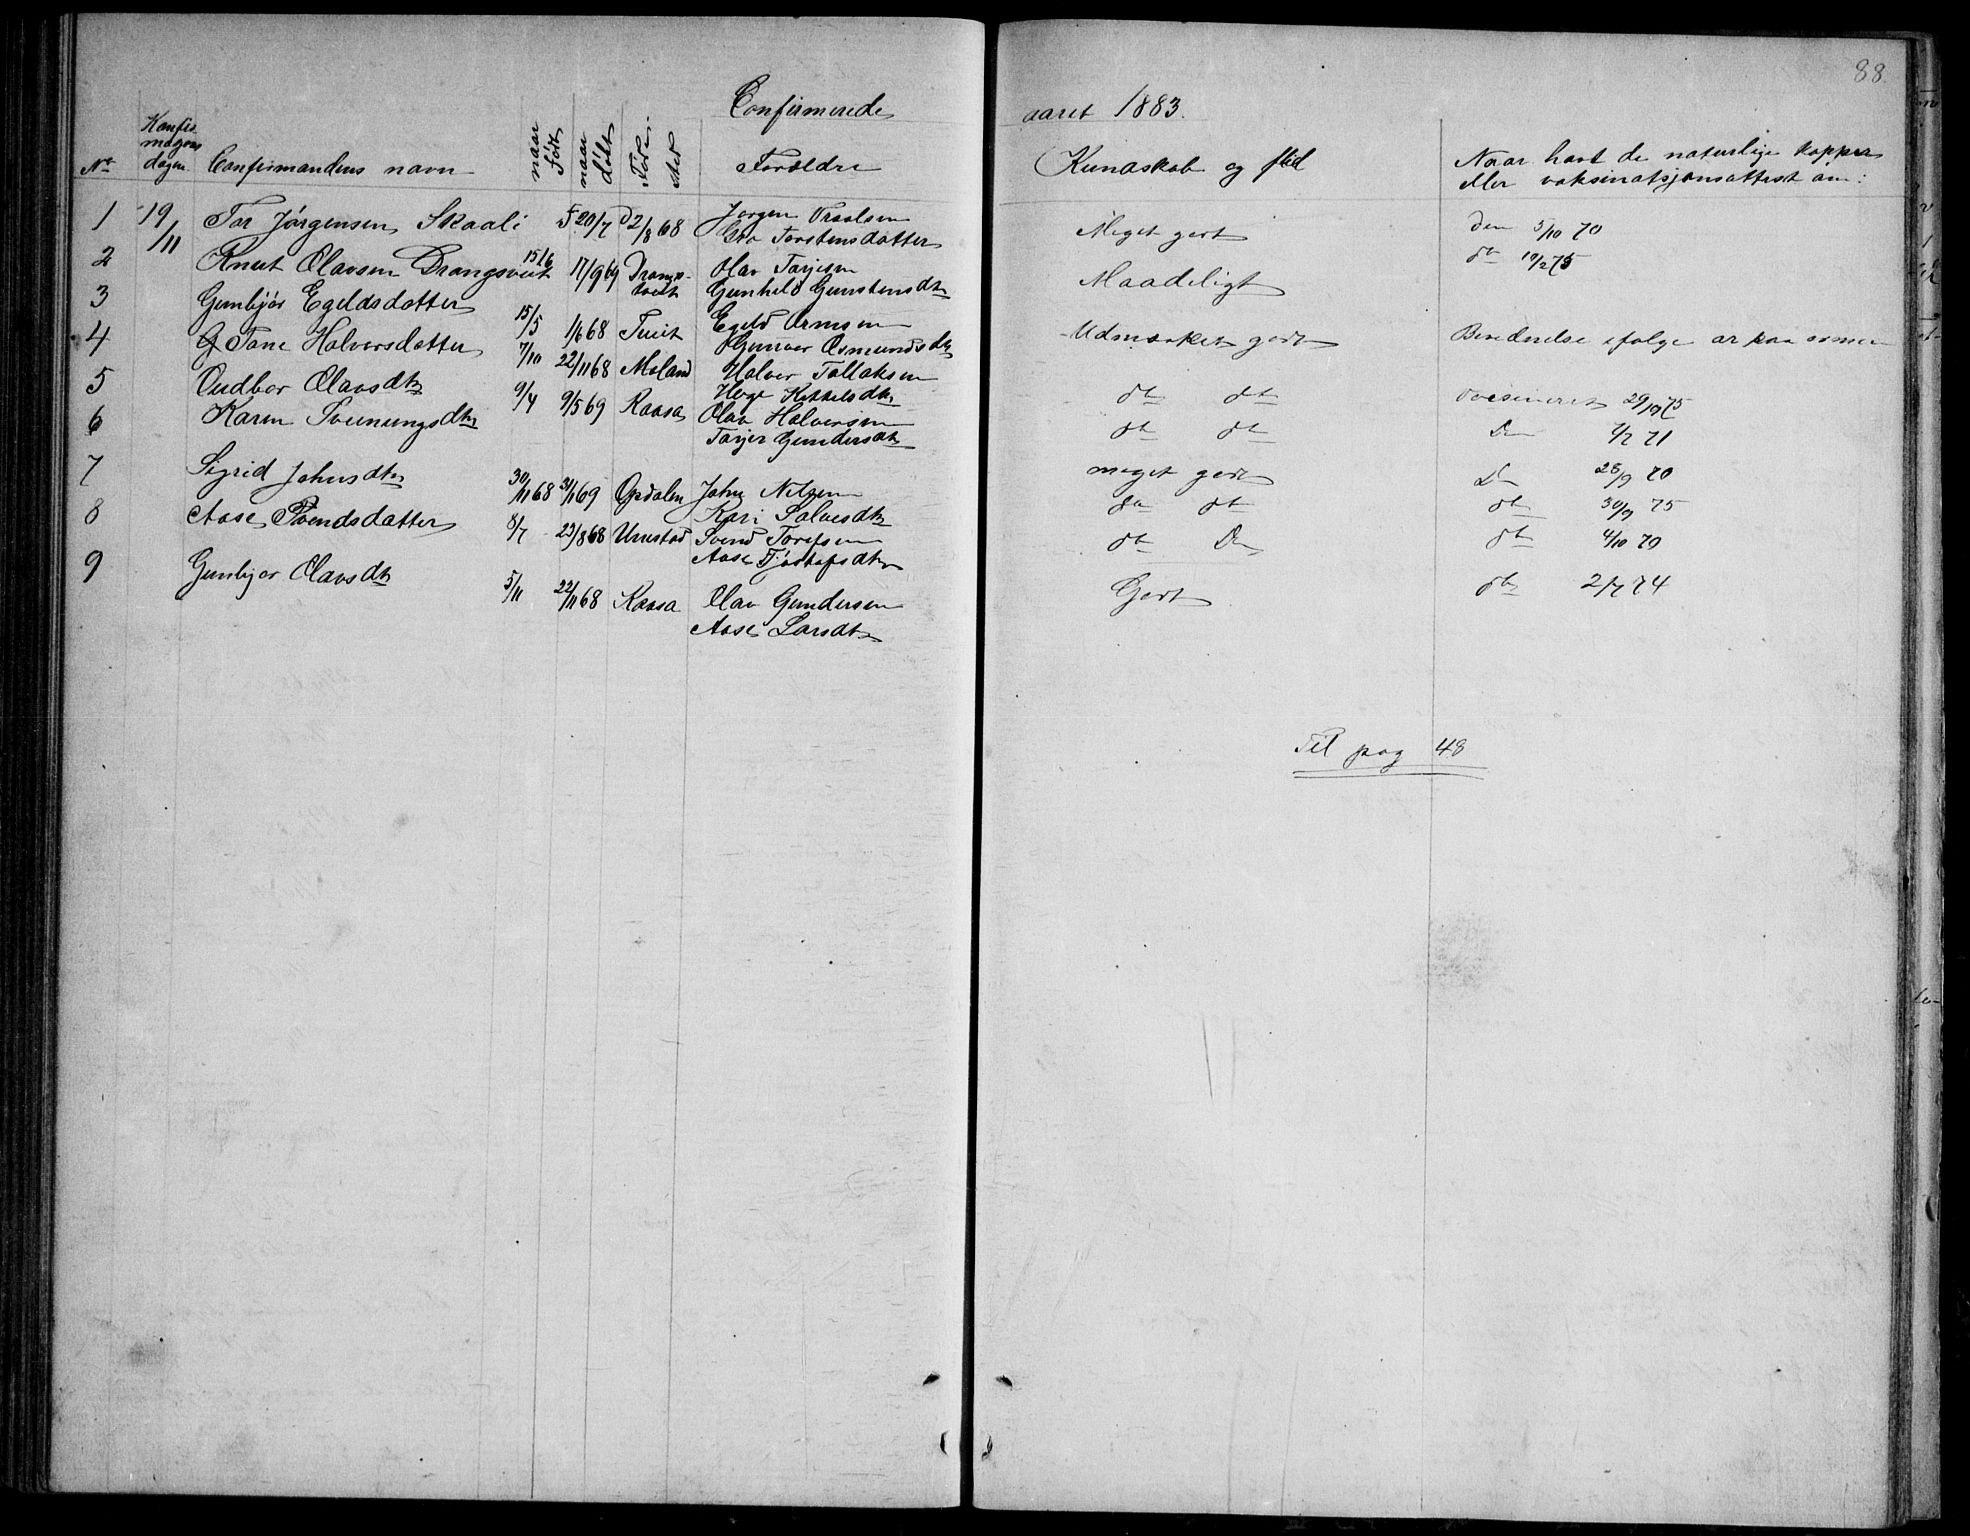 88.
Confirmerede
aaret 1883.
No
Konfir
mations
dagen
Confirmandens navn
naar Født
naar døbt
Føde Sted
Forældre
Kundskab og flid
Naar havt de naturlige kopper
eller vaksinatsjonsattest av:
1 19/11 Tor Jørgensen Skaali F 20/7 D 2/8 68 Jørgen
Gro Torstensdatter
Meget godt den 5/10 70
2 Knut Olavsen Drangsveit 15/6 17/9 69 Drangs-
veit
Olav Tarjesen
Gunhild Gunstensdtr
Maadeligt dto 19/2 75
3 Gunbjør Egeldsdatter 15/5 1/6 68 Tveit Egeld Ormsen
Gunvor Osmundsdtr
Udmærket godt
4 Tone Halvorsdatter 7/10 22/11 68 Moland Halvor Tallaksen
Hege Kittelsdtr
dto dto 29/10 75
5 Oudbor Olavsdtr 9/4 9/5 69 Raasa Olav Halvorsen
Tarjer Gundersdtr
dto dto Do 1/7 71
6 Karen Sveinungsdtr
meget godt Do 28/9 70
7 Sigrid Johnsdtr 30/11 68 31/1 69 Opdalen John Nilsen
Kari Salvesdtr
do dto dto 30/9 75
8 Aase Svendsdatter 8/7 23/8 68 Unestad Svend Torjesen
Aase Tjøstofsdtr
dto Do dto 4/10 70
9 Gunbjor Olavsdtr 5/11 22/11 68 Raasa Olav Gundersen
Aase Larsdtr
Godt dto 2/7 74
Til pag 48